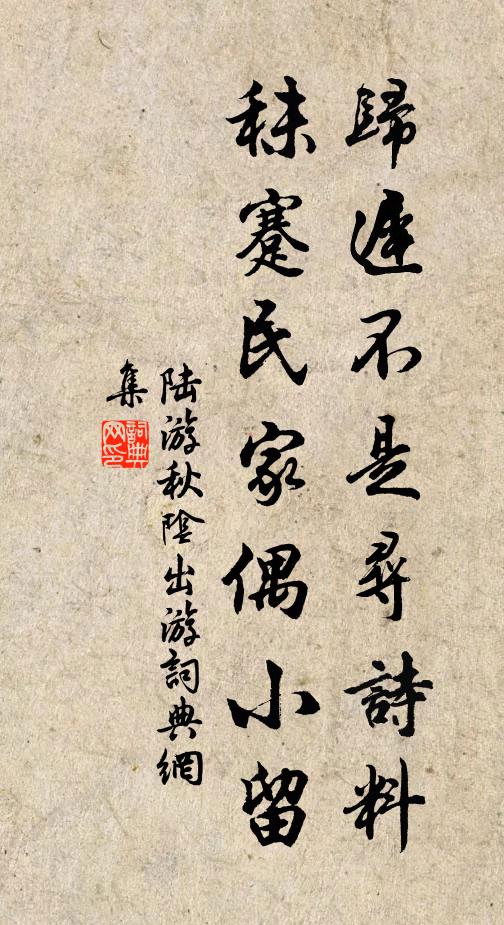 歸遲不是尋詩料
秣蹇民家偶小留
陆游秋陰出游詞典網
集
詞典
网印